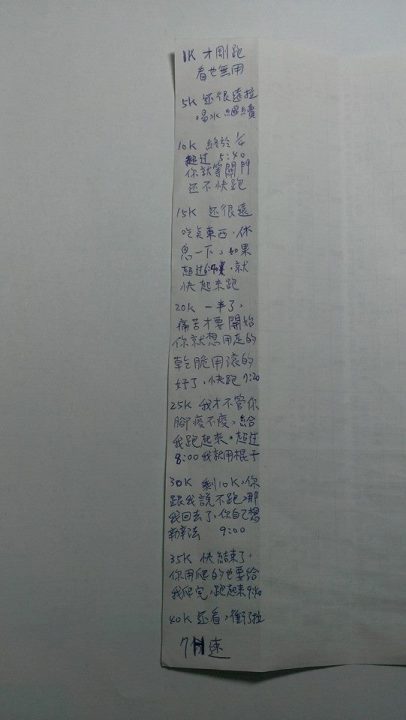 1K 才剛跑
看也無用
5K 還很遠拉
喝水 繼續
10K 終於 1/4
超过 5:40
你就等關門
还不快跑
15K 还很遠
吃点東西,休
息一下。如果
超过 就
快起來跑
20K 一半了,
痛苦才要開始
你就想用走的
乾脆用滾的
好了,快跑 7:20
25K 我才不管你
腳痠不痠,給
我跑起來。超过
8:00 我就用棍子
30K 剩10K,你
跟我說不跑,那
我回去了,你自己想
辦法 9:00
35K 快結束了,
你用爬的也要給
我爬完,跑起來 9:40
40K 还看,衝了啦
速